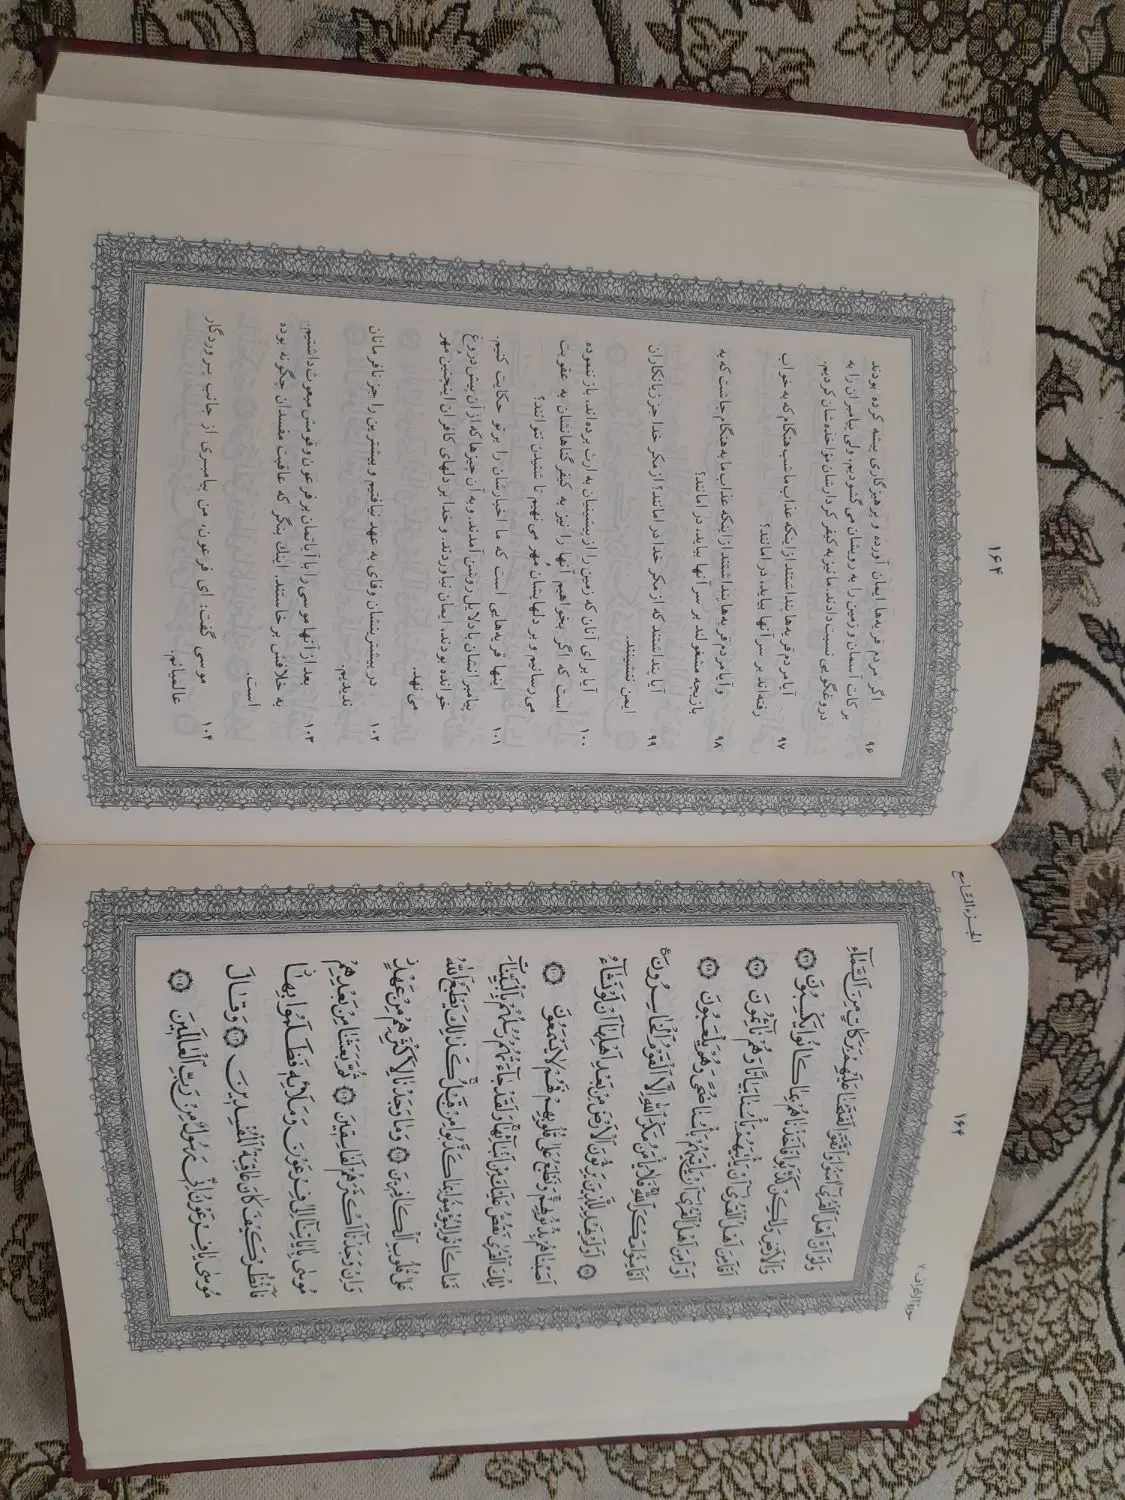 سورة الاعراف ۷
۱۶۴
الجزء التاسع
وَلَوْ أَنَّ أَهْلَ الْقُرَىٰ آمَنُوا وَاتَّقَوْا لَفَتَحْنَا عَلَيْهِمْ بَرَكَاتٍ مِنَ السَّمَاءِ
وَالْأَرْضِ وَلٰكِنْ كَذَّبُوا فَأَخَذْنَاهُمْ بِمَا كَانُوا يَكْسِبُونَ ۹۶
أَفَأَمِنَ أَهْلُ الْقُرَىٰ أَنْ يَأْتِيَهُمْ بَأْسُنَا بَيَاتًا وَهُمْ نَائِمُونَ ۹۷
أَوَأَمِنَ أَهْلُ الْقُرَىٰ أَنْ يَأْتِيَهُمْ بَأْسُنَا ضُحًى وَهُمْ يَلْعَبُونَ ۹۸
أَفَأَمِنُوا مَكْرَ اللَّهِ فَلَا يَأْمَنُ مَكْرَ اللَّهِ إِلَّا الْقَوْمُ الْخَاسِرُونَ ع
۹۹ أَوَلَمْ يَهْدِ لِلَّذِينَ يَرِثُونَ الْأَرْضَ مِنْ بَعْدِ أَهْلِهَا أَنْ لَوْ نَشَاءُ
أَصَبْنَاهُمْ بِذُنُوبِهِمْ وَنَطْبَعُ عَلَىٰ قُلُوبِهِمْ فَهُمْ لَا يَسْمَعُونَ ۱۰۰
تِلْكَ الْقُرَىٰ نَقُصُّ عَلَيْكَ مِنْ أَنْبَائِهَا وَلَقَدْ جَاءَتْهُمْ رُسُلُهُمْ بِالْبَيِّنَاتِ
فَمَا كَانُوا لِيُؤْمِنُوا بِمَا كَذَّبُوا مِنْ قَبْلُ كَذٰلِكَ يَطْبَعُ اللَّهُ
عَلَىٰ قُلُوبِ الْكَافِرِينَ ۱۰۱ وَمَا وَجَدْنَا لِأَكْثَرِهِمْ مِنْ عَهْدٍ
وَإِنْ وَجَدْنَا أَكْثَرَهُمْ لَفَاسِقِينَ ۱۰۲ ثُمَّ بَعَثْنَا مِنْ بَعْدِهِمْ
مُوسَىٰ بِآيَاتِنَا إِلَىٰ فِرْعَوْنَ وَمَلَائِهِ فَظَلَمُوا بِهَا
فَانْظُرْ كَيْفَ كَانَ عَاقِبَةُ الْمُفْسِدِينَ ۱۰۳ وَقَالَ
مُوسَىٰ يَا فِرْعَوْنُ إِنِّي رَسُولٌ مِنْ رَبِّ الْعَالَمِينَ ۱۰۴
۱۶۴
۹۶ اگر مردم قریه‌ها ایمان آورده و پرهیزگاری پیشه کرده بودند
برکات آسمان و زمین را به رویشان می گشودیم، ولی پیامبران را به
دروغگویی نسبت دادند. ما نیز به کیفر کردارشان مؤاخذه‌شان کردیم.
۹۷ آیا مردم قریه‌ها پنداشتند از اینکه عذاب ما شب هنگام که به خواب
رفته‌اند بر سر آنها بیاید، در امانند؟
۹۸ و آیا مردم قریه‌ها پنداشتند از اینکه عذاب ما به هنگام چاشت که به
بازیچه مشغولند بر سر آنها بیاید، در امانند؟
۹۹ آیا پنداشتند که از مکر خدا در امانند؟ از مکر خدا جز زیانکاران
ایمن ننشینند.
۱۰۰ آیا برای آنان که زمین را از پیشینیان به ارث برده‌اند، باز ننموده
است که اگر بخواهیم آنها را نیز به کیفر گناهانشان به عقوبت
می رسانیم و بر دلهایشان مُهر می نهیم تا شنیدن نتوانند؟
۱۰۱ اینها قریه‌هایی است که ما اخبارشان را بر تو حکایت کنیم.
پیامبرانشان با دلایل روشن آمدند. و به آن چیزها که از آن پیش دروغ
خوانده بودند، ایمان نیاوردند. و خدا بر دلهای کافران اینچنین مُهر
می نهد.
۱۰۲ در بیشترینشان وفای به عهد نیافتیم و بیشترین را جز نافرمانان
ندیدیم.
۱۰۳ بعد از آنها موسی را با آیاتمان بر فرعون و قومش مبعوث داشتیم.
به خلافش برخاستند. اینك بنگر که عاقبت مفسدان چگونه بوده
است.
۱۰۴ موسی گفت: ای فرعون، من پیامبری از جانب پروردگار
عالمیانم.